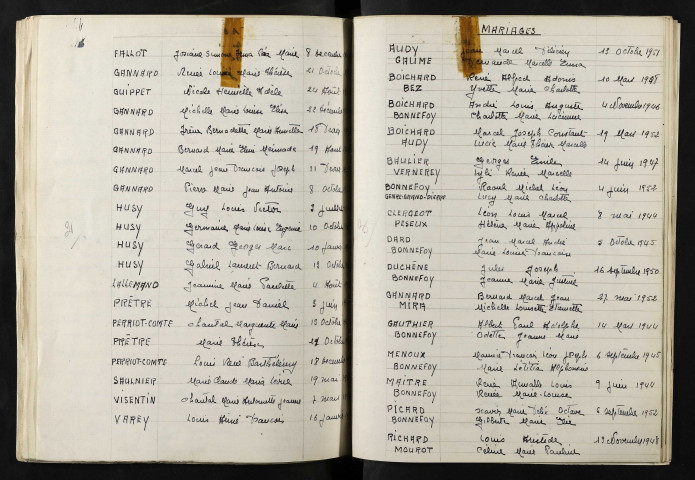 FALLOT Marie 8
GANNARD Renée Louise Marie Thérèse 21 Octobre
GUIPPET Nicole Henriette Adèle 24 Août
GANNARD Michelle Marie Louise 22
GANNARD Bernadette Marie Henriette 18
GANNARD Bernard Marie 19 Août
GANNARD Marcel Jean François Joseph 11
GANNARD Pierre Marie Jean Antoine 8 Octobre
HUSY Guy Louis Victor 2 Juillet
HUSY Germaine Marie Louise Eugénie 10 Octobre
HUSY Gérard Georges Marc 10
HUSY Gabriel Laurent Bernard 19 Octobre
LALLEMAND Jeannine Marie Paulette 4 Août
PRÊTRE Michel Jean Daniel 2 juin
PERRIOT-COMTE Chantal Marguerite Marie 12 Octobre
PRÊTRE Marie Thérèse 21 Octobre
PERRIOT-COMTE Louis René Barthélémy 18
SAULNIER Marie Claude Marie 19 mai
VISENTIN Chantal Marie Antoinette Jeanne 7 mars
VAREY Louis Henri François 16
MARIAGES
AUDY Jean Marcel Félicien 13 Octobre 1951
GALIME Marcelle Emma
BOICHARD René Alfred Adonis 10 Mars 1948
BEZ Yvette Marie Charlotte
BOICHARD André Louis Auguste 4 Novembre 1946
BONNEFOY Charlotte Marie Lucienne
BOICHARD Marcel Joseph Constant 19 Mars 1952
AUDY Lucie Marie Thérèse Marcelle
BAULIER Georges Emile 14 Juin 1947
VERNEREY Renée Marcelle
BONNEFOY Raoul Michel Léon 4 Juin 1952
Lucy Marie Charlotte
CLERGEOT Léon Louis Marcel 8 mai 1944
PESEUX Hélène Marie Appoline
DARD Jean Marcel André 5 Octobre 1945
BONNEFOY Marie Louise Françoise
DUCHÊNE Jules Joseph 16 Septembre 1950
BONNEFOY Jeanne Marie Justine
GANNARD Bernard Marcel Jean 27 mai 1952
MIRA Michelle Louisette Henriette
GAUTHIER Albert Paul Adolphe 14 Mars 1944
BONNEFOY Odette Jeanne Marie
MENOUX Maurice François Léon Joseph 6 Septembre 1945
BONNEFOY Marie Létitia Alphonsine
MAITRE René Louis 9 Juin 1944
BONNEFOY Renée Marie-Louise
PICARD Marie Félix Octave 6 Septembre 1952
BONNEFOY Gilberte Marie
RICHARD Louis Aristide 13 Novembre 1948
MOUROT Céline Marie Pauline